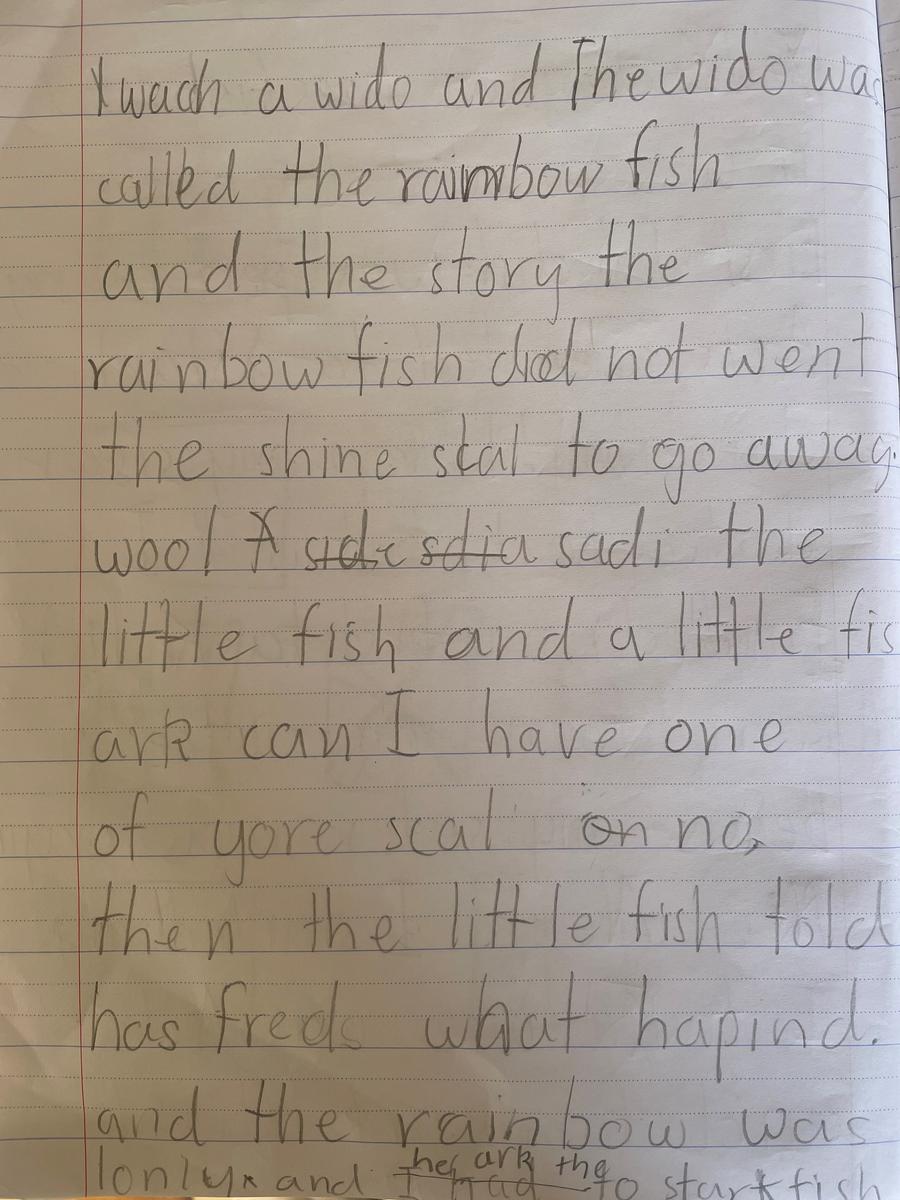 I wach a wido and The wido was
called the rainbow fish
and the story the
rainbow fish did not went
the shine scal to go away.
wool sadi the
little fish and a little fis
ark can I have one
of yore scal on no,
then the little fish told
has freds what hapind.
and the rainbow was
he ark the
lonly and I had to start fish